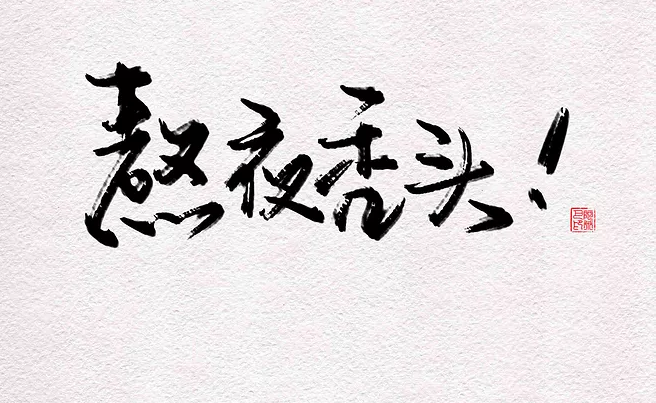 熬夜秃头！